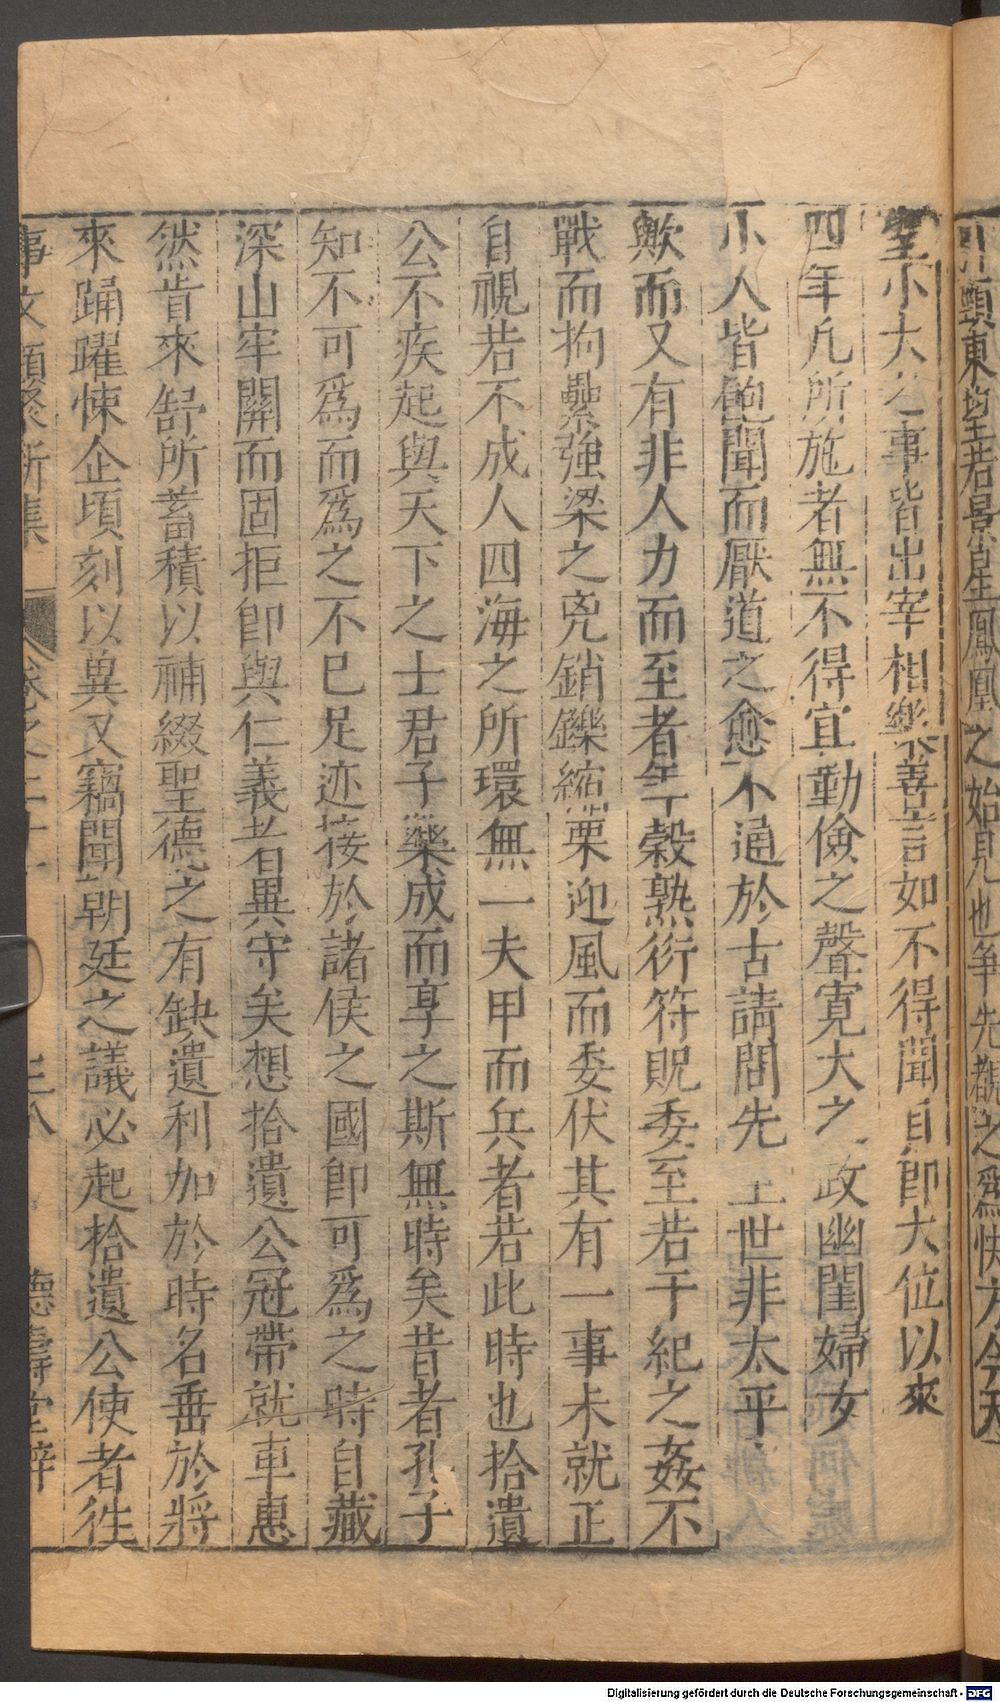 外顒東望若景星鳳凰之始見也爭先覩之爲快方今天
望小大之事皆出宰相樂善言如不得聞自即大位以來
四年凡所施者無不得宜勤儉之聲寬大之政幽閨婦女
小人皆飽聞而厭道之愈不通於古請問先 世非太平
歟而又有非人力而至者年穀熟衍符貺委至若干紀之姦不
戰而拘纍強梁之兇銷鑠縮栗迎風而委伏其有一事未就正
自視若不成人四海之所環無一夫甲而兵者若此時也拾遺
公不疾起與天下之士君子樂成而享之斯無時矣昔者孔子
知不可爲而爲之不已足迹接於諸侯之國即可爲之時自藏
深山牢關而固拒即與仁義者異守矣想拾遺公冠帶就車惠
然肯來舒所蓄積以補綴聖德之有缺遺利加於時名垂於將
來踊躍悚企頃刻以冀又竊聞朝廷之議必起拾遺公使者徃
事文類聚新集 卷之二十 三八 德壽堂梓
Digitalisierung gefördert durch die Deutsche Forschungsgemeinschaft - DFG